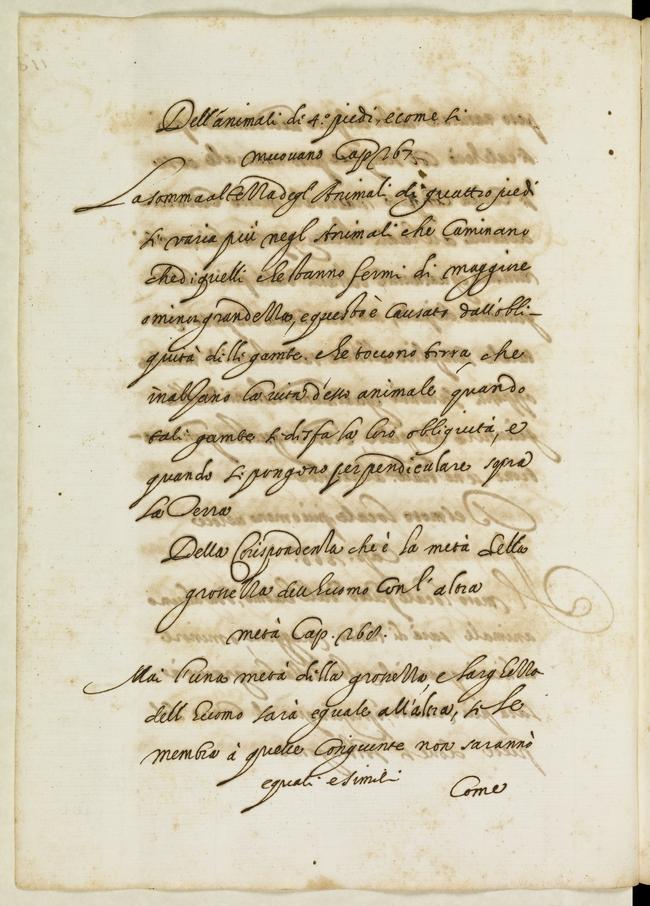 Dell'animali di 4.º piedi, e come si
muouano Cap. 267.
La somma altezza degl'Animali di quattro piedi
si varia più negl'Animali che Caminano
che di quelli che stanno fermi di maggiore
o minor grandezza, e questo è Causato dall'obli-
quità delli gambe che toccono terra che
inalzano la vita d'esso animale quando
tali gambe si disfa la loro obliquità, e
quando si pongono perpendiculare sopra
la Terra
Della Corispondenza che è la metà della
grossezza dell'huomo Con l'altra
metà Cap. 268.
Mai l'una metà della grossezza, e larghezza
dell'huomo sarà equale all'altra, si le
membra à quelle Congiunte non saranno
equali e simili
Come